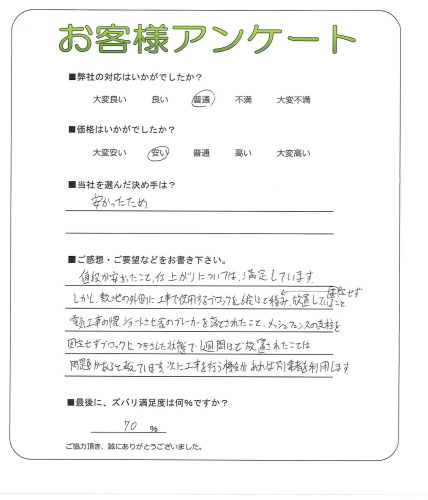 お客様アンケート
■弊社の対応はいかがでしたか？
大変良い 良い 普通 不満 大変不満
■価格はいかがでしたか？
大変安い 安い 普通 高い 大変高い
■当社を選んだ決め手は？
安かったため
■ご感想・ご要望などをお書き下さい。
値段が安かったこと、仕上がりについては、満足しています。
しかし、敷地の外側に工事で使用するブロックを6段ほど積み、固定せず放置していること、
電気工事の際、ショートさせ家のブレーカーを落とされたこと、メッシュフェンスの支柱を
固定せずブロック上つきさした状態で1週間ほど放置されたことは
問題があると考えています。次に工事を行う機会があれば別業者を利用します
■最後に、ズバリ満足度は何％ですか？
70 ％
ご協力頂き、誠にありがとうございました。